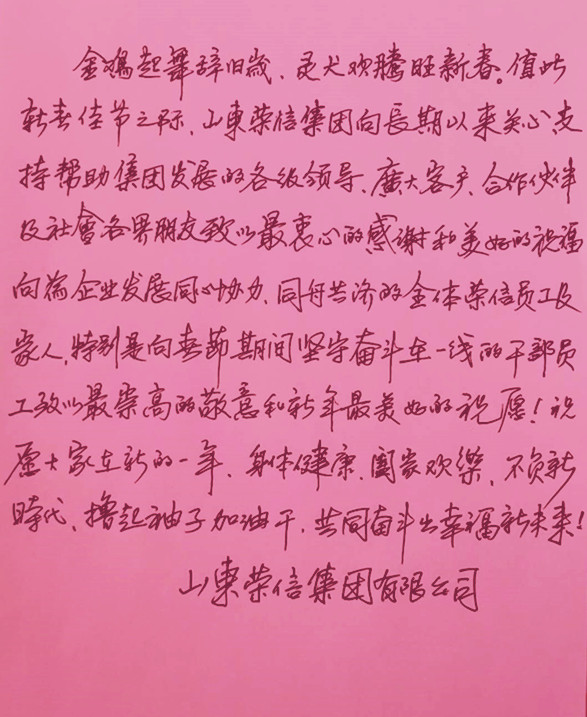 金鸡起舞辞旧歲、灵犬欢騰旺新春。值此
新春佳节之际、山東荣信集团向長期以来关心、支
持帮助集团发展的各级领导、廣大客户、合作伙伴
及社會各界朋友致以最衷心的感谢和美好的祝福
向為企业发展同心协力、同舟共济的全体荣信员工及
家人,特别是向春節期间坚守奋斗在一线的干部员
工致以最崇高的敬意和新年最美好的祝愿!祝
愿大家在新的一年、身体健康、阖家欢樂、不负新
時代、撸起袖子加油干、共同奋斗出幸福新未来!
山東荣信集团有限公司